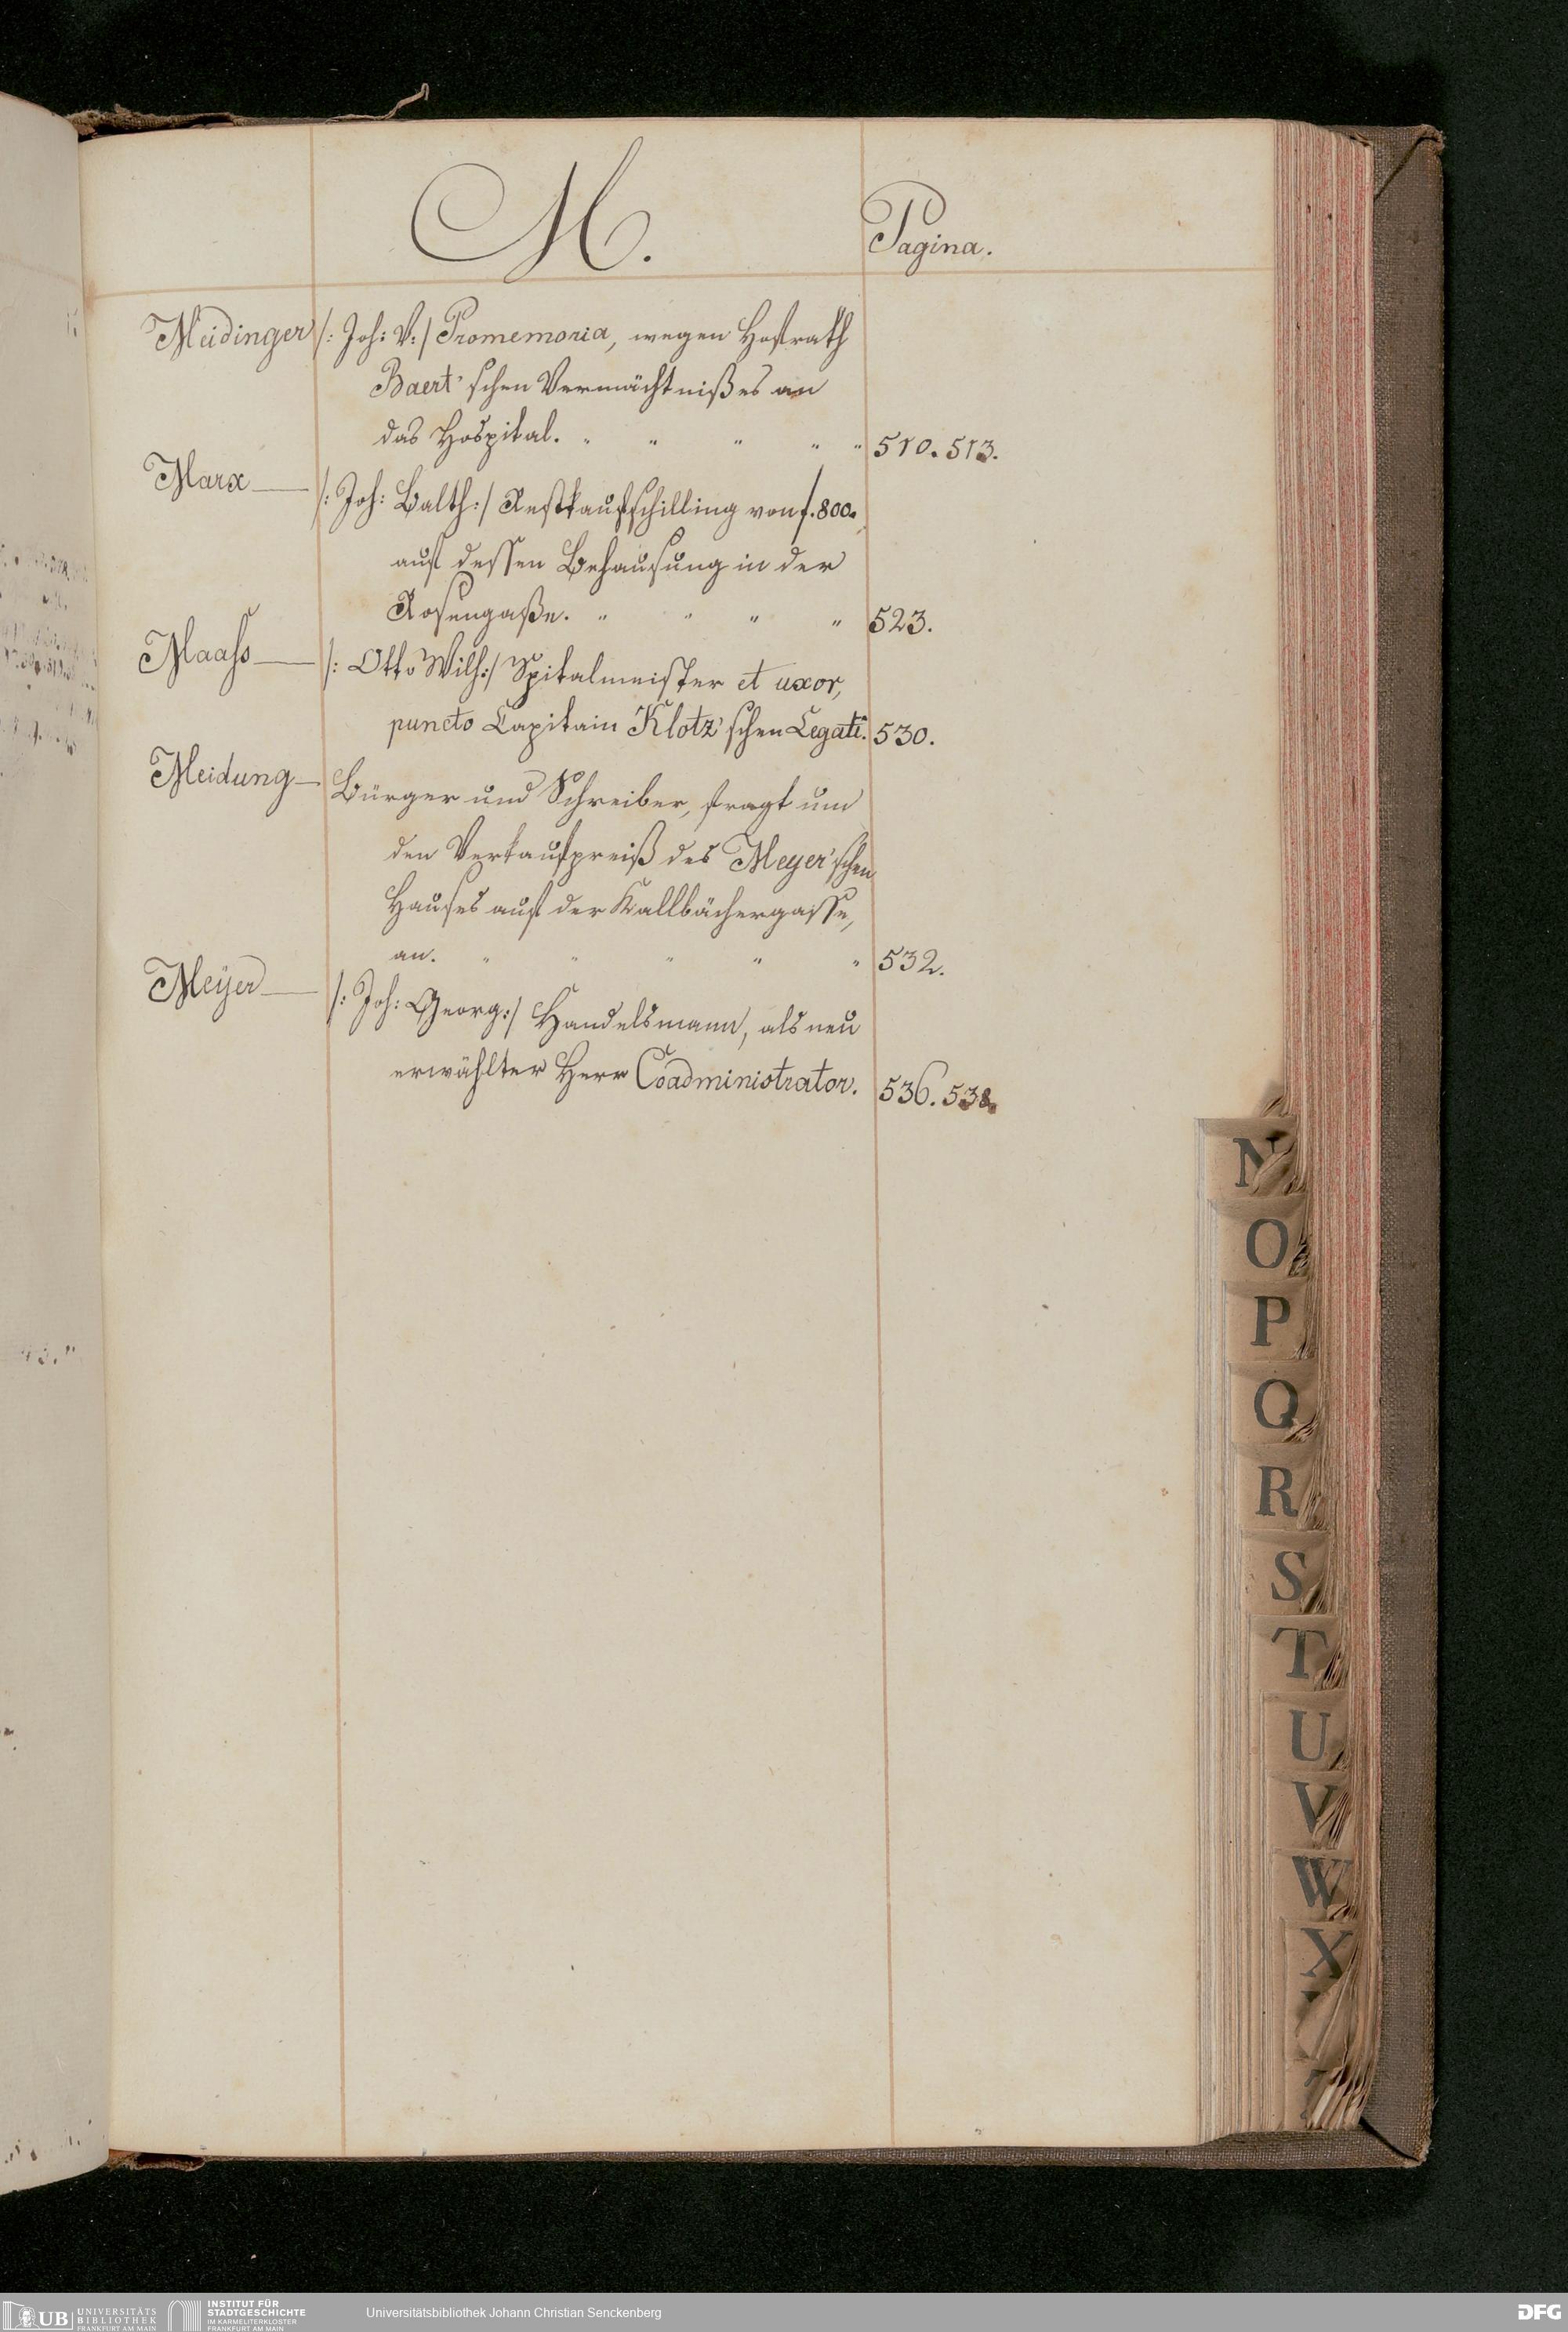 M.
Pagina.
Meidinger /: Joh: V:/ Promemoria, wegen Hofrath
Baert'schen Vermächtnißes an
das Hospital. " " " " " 510. 513.
Marx — /: Joh: Balth:/ Restkaufschilling von f. 800.
auf dessen Behausung in der
Rosengaße. " " " " 523.
Maass — /: Otto Wilh:/ Spitalmeister et uxor,
puncto Capitain Klotz'schen Legati. 530.
Meidung — Bürger und Schreiber, fragt um
den Verkaufpreiß des Meyer'schen
Hauses auf der Kallbächergasse,
an. " " " " " 532.
Meÿer — /: Joh: Georg:/ Handelsmann, als neu
erwählter Herr Coadministrator. 536. 538.
N
O
P
Q
R
S
T
U
V
W
X
UB UNIVERSITÄTS
BIBLIOTHEK
FRANKFURT AM MAIN
INSTITUT FÜR
STADTGESCHICHTE
IM KARMELITERKLOSTER
FRANKFURT AM MAIN
Universitätsbibliothek Johann Christian Senckenberg
DFG